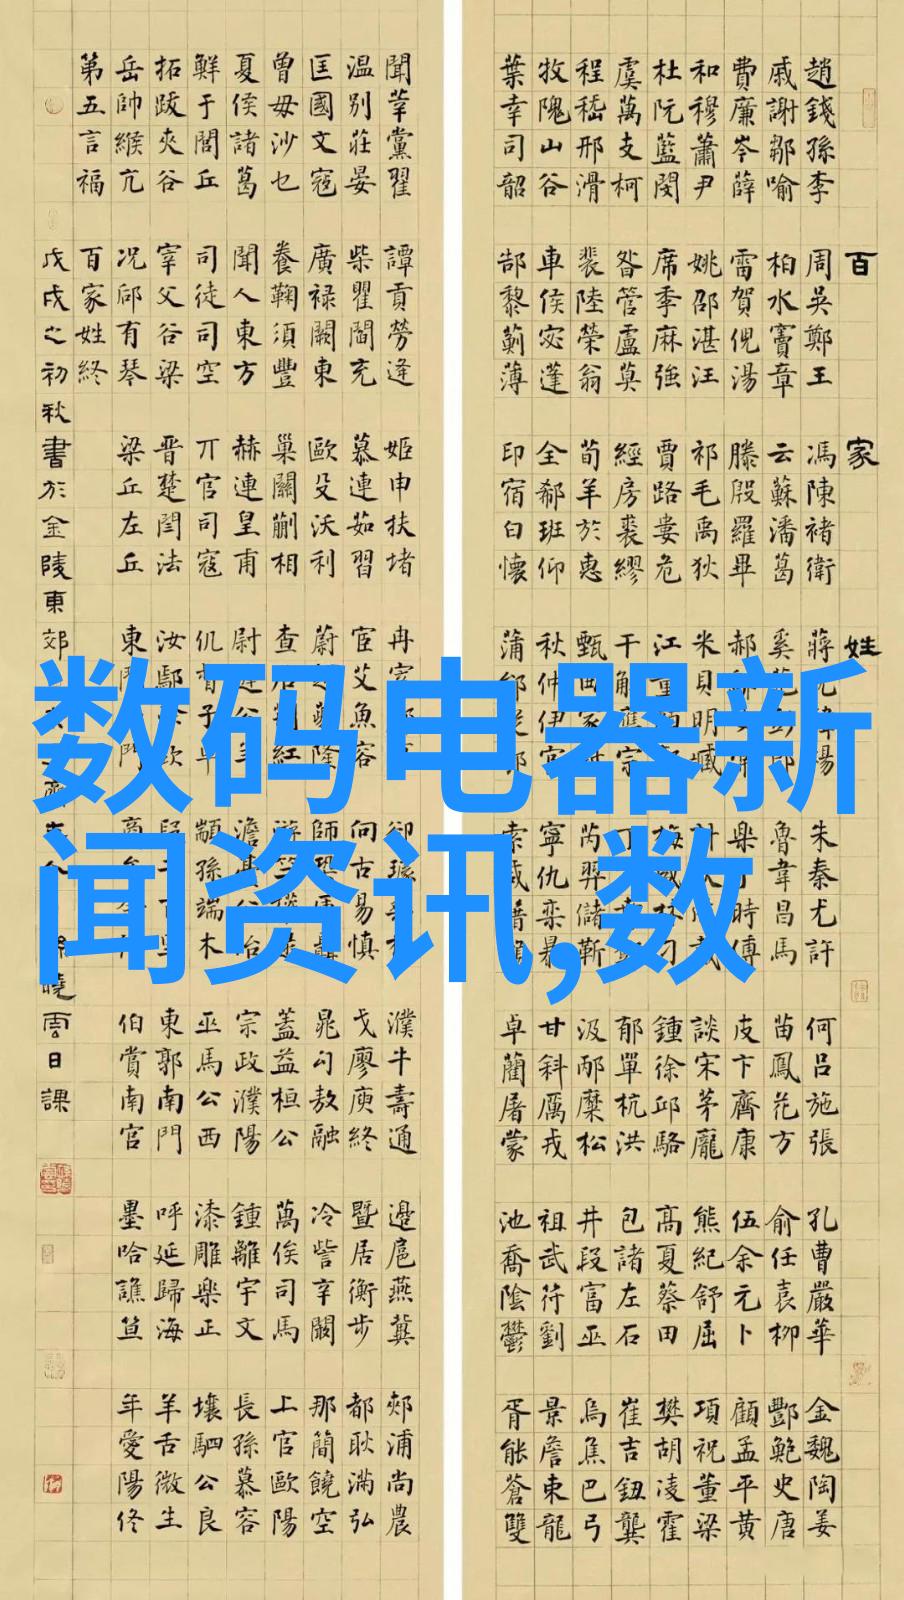 百家姓
趙錢孫李 周吳鄭王 馮陳褚衛 蔣沈韓楊 朱秦尤許 何呂施張 孔曹嚴華 金魏陶姜
戚謝鄒喻 柏水竇章 云蘇潘葛 奚范彭郎 魯韋昌馬 苗鳳花方 俞任袁柳 酆鮑史唐
費廉岑薛 雷賀倪湯 滕殷羅畢 郝鄔安常 樂于時傅 皮卞齊康 伍余元卜 顧孟平黃
和穆蕭尹 姚邵湛汪 祁毛禹狄 米貝明臧 計伏成戴 談宋茅龐 熊紀舒屈 項祝董梁
杜阮藍閔 席季麻強 賈路婁危 江童顏郭 梅盛林刁 鍾徐邱駱 高夏蔡田 樊胡凌霍
虞萬支柯 昝管盧莫 經房裘繆 干解應宗 丁宣賁鄧 郁單杭洪 包諸左石 崔吉鈕龔
程嵇邢滑 裴陸榮翁 荀羊於惠 甄曲家封 芮羿儲靳 汲邴糜松 井段富巫 烏焦巴弓
牧隗山谷 車侯宓蓬 全郗班仰 秋仲伊宮 寧仇欒暴 甘斜厲戎 祖武符劉 景詹束龍
葉幸司韶 郜黎薊薄 印宿白懷 蒲邰從鄂 索咸籍賴 卓藺屠蒙 池喬陰鬱 胥能蒼雙
聞莘黨翟 譚貢勞逄 姬申扶堵 冉宰酈雍 郤璩桑桂 濮牛壽通 邊扈燕冀 郟浦尚農
温別莊晏 柴瞿閻充 慕連茹習 宦艾魚容 向古易慎 戈廖庾終 暨居衡步 都耿滿弘
匡國文寇 廣禄闕東 歐殳沃利 蔚越夔隆 師鞏厙聶 晁勾敖融 冷訾辛闞 那簡饒空
曾毋沙乜 養鞠須豐 巢關蒯相 查后荊紅 游竺權逯 蓋益桓公 萬俟司馬 上官歐陽
夏侯諸葛 聞人東方 赫連皇甫 尉遲公羊 澹臺公冶 宗政濮陽 鍾離宇文 長孫慕容
鮮于閭丘 司徒司空 丌官司寇 仉督子車 顓孫端木 巫馬公西 漆雕樂正 壤駟公良
拓跋夾谷 宰父谷梁 晉楚閆法 汝鄢涂欽 段干百里 東郭南門 呼延歸海 羊舌微生
岳帥緱亢 況郈有琴 梁丘左丘 東門西門 商牟佘佴 伯賞南宮 墨哈譙笪 年愛陽佟
第五言福 百家姓終
戊戌之初秋書於金陵東郊 徐曉雲日課
数码电器新
闻资讯,数